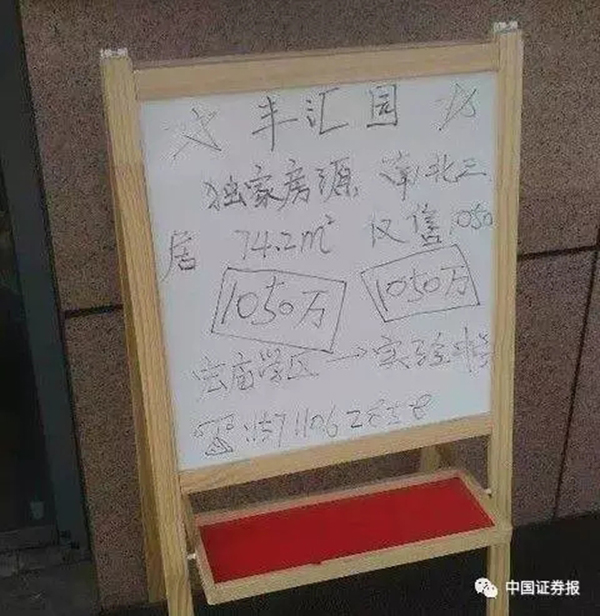 ☆ 丰汇园 ☆
独家房源 南北三
居 74.2m² 仅售1050
1050万 1050万
宏庙学区→实验中学
☎:15711062858
中国证券报